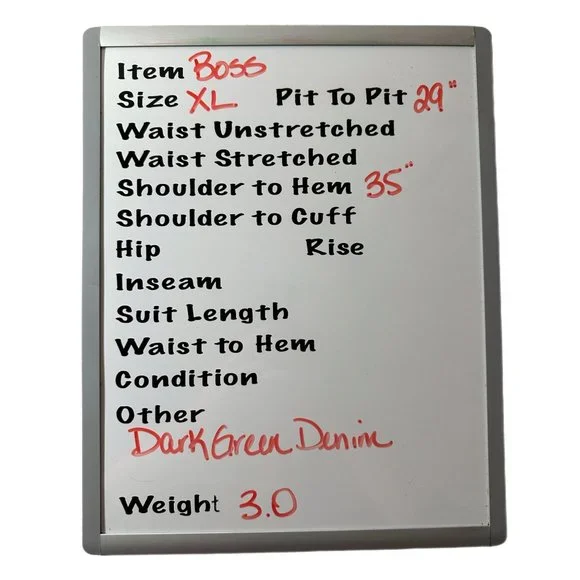 Item Boss
Size XL Pit To Pit 29"
Waist Unstretched
Waist Stretched
Shoulder to Hem 35"
Shoulder to Cuff
Hip Rise
Inseam
Suit Length
Waist to Hem
Condition
Other
Dark Green Denim
Weight 3.0